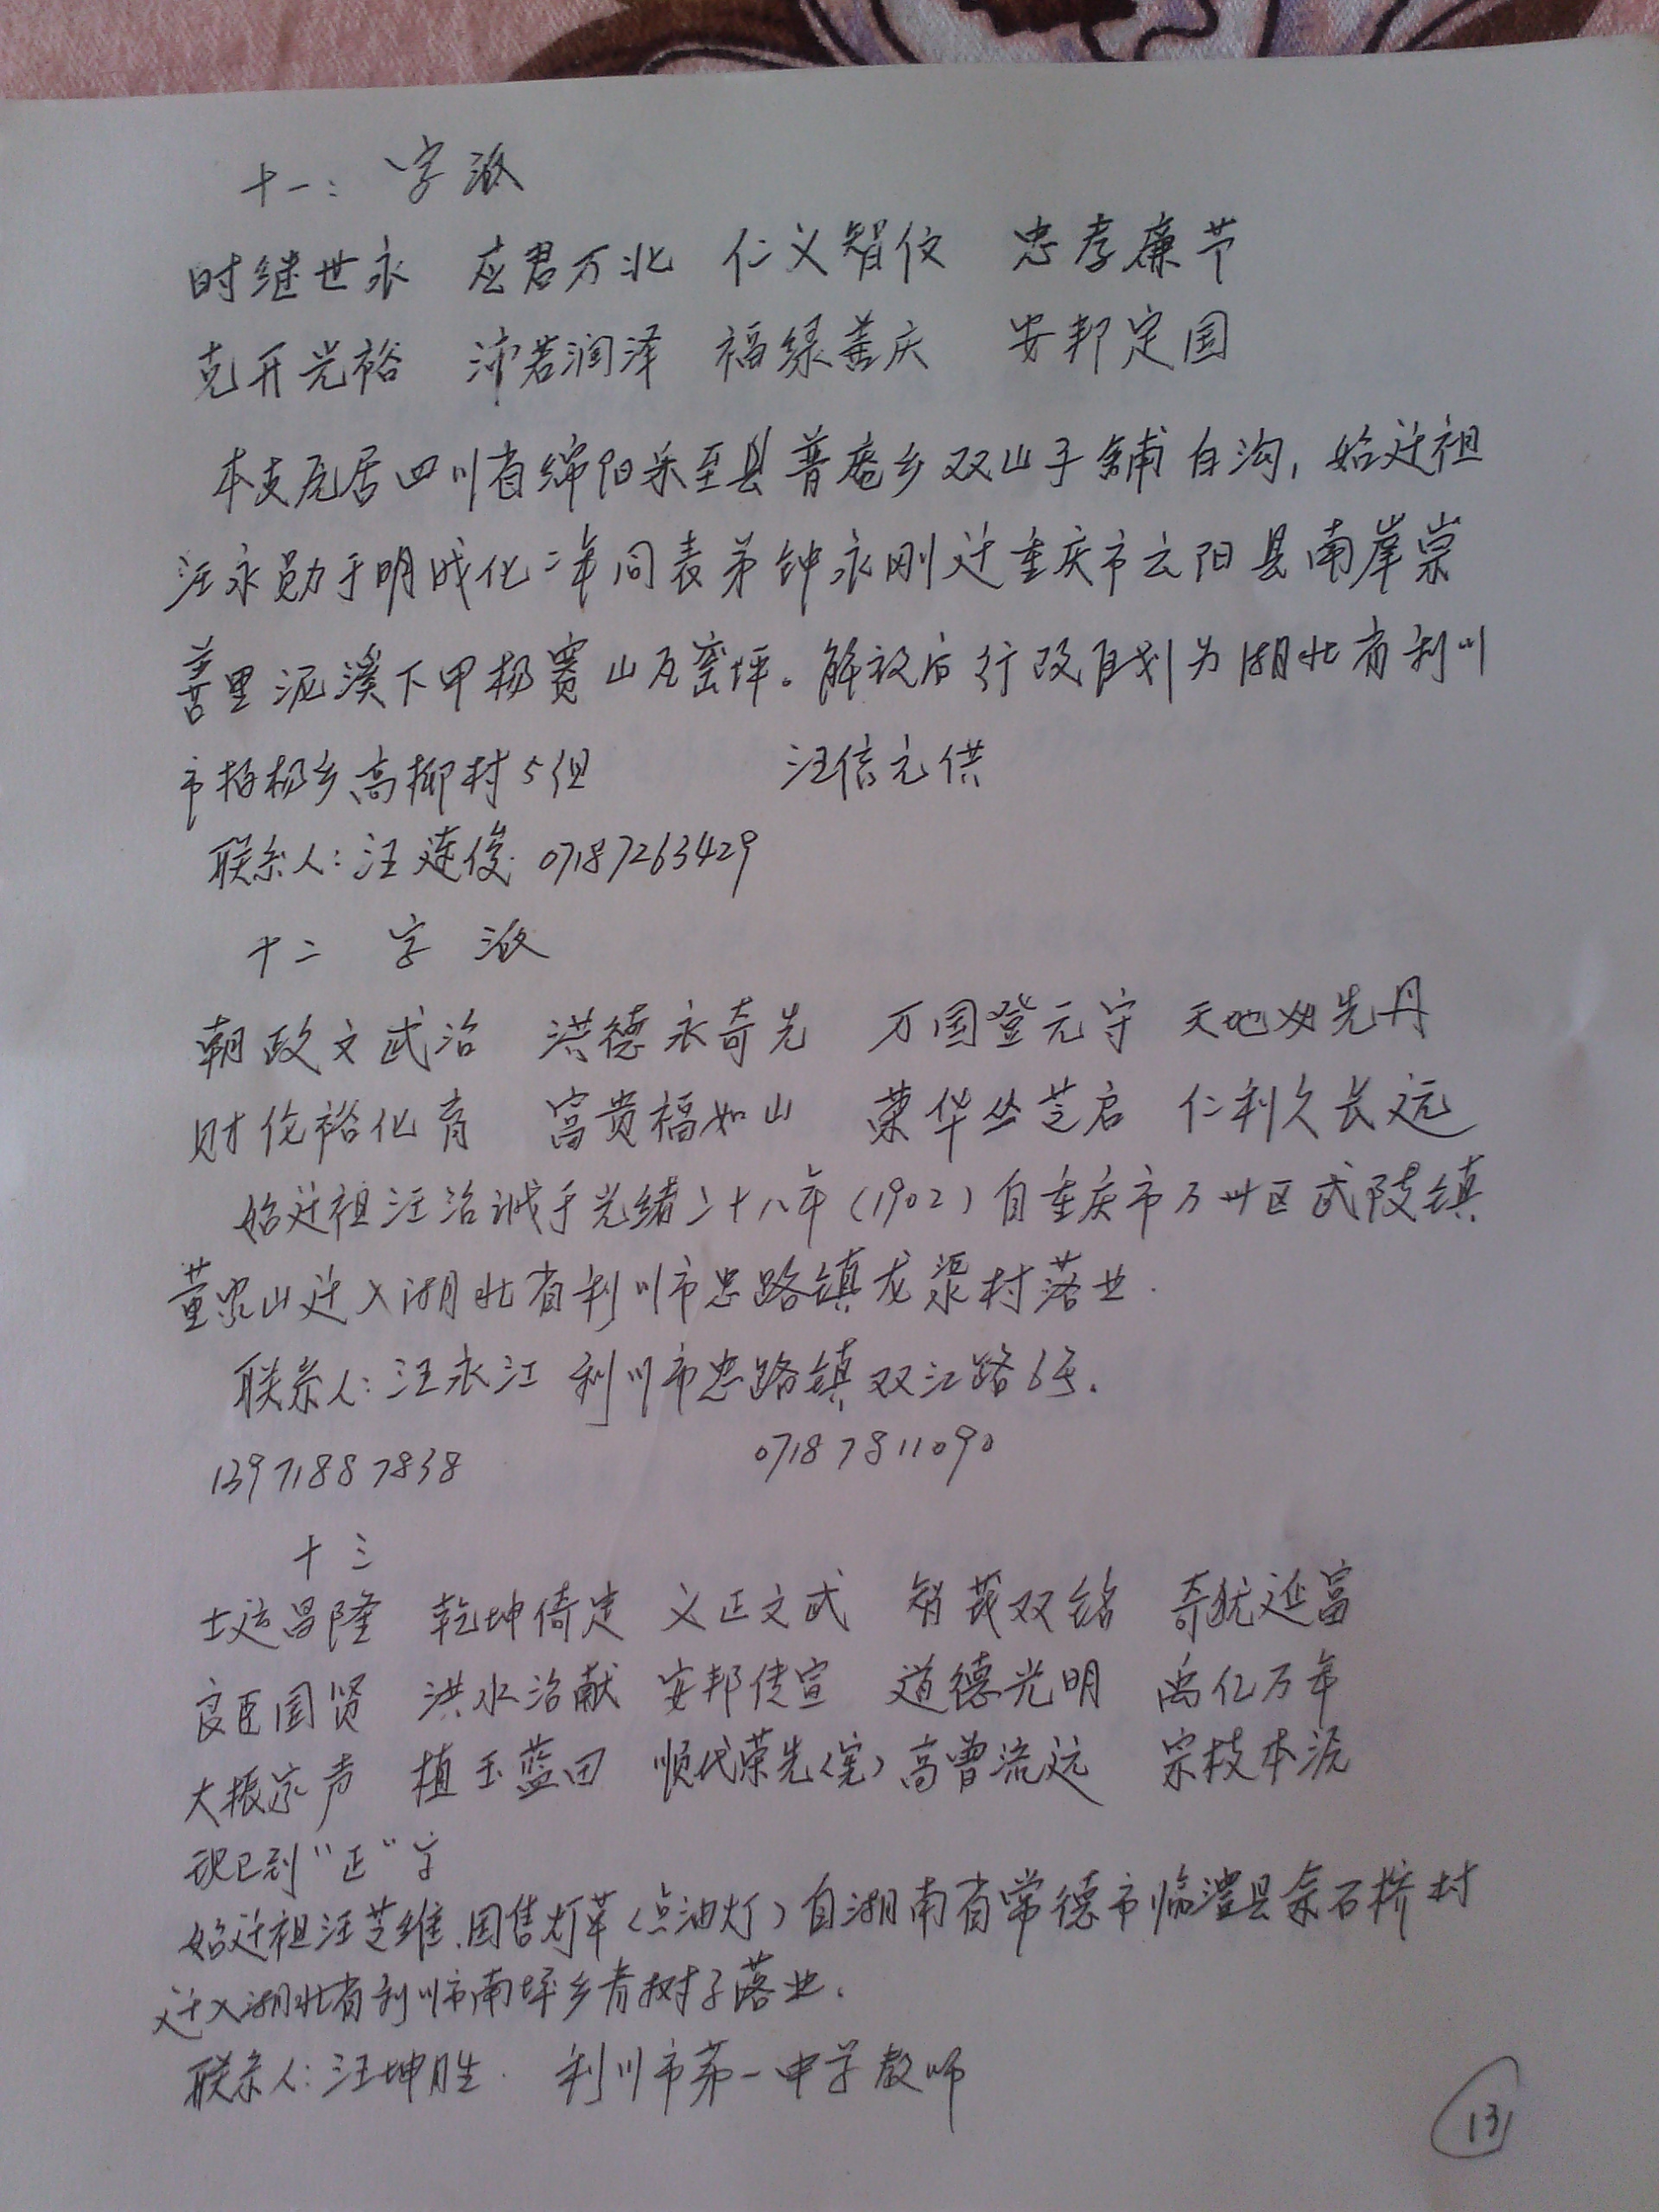 十一：字派
时继世永 应君万北 仁义智仪 忠孝廉节
克开光裕 沛若润泽 福绿善庆 安邦定国
本支原居四川省绵阳乐至县普菴乡双山子铺白沟，始迁祖
汪永勋于明成化二年同表弟钟永刚迁重庆市云阳县南岸崇
善里泥溪下甲杨赛山瓦窑坪。解放后行政区划为湖北省利川
市柏杨乡高柳村5组 汪信元供
联系人：汪连俊 07187263429
十二 字派
朝政文武治 洪德永奇先 万国登元守 天地必先丹
财伦裕化育 富贵福如山 荣华丛芝启 仁利久长远
始迁祖汪治诚于光绪二十八年（1902）自重庆市万州区武陵镇
董家山迁入湖北省利川市忠路镇龙渠村落业.
联系人：汪永江 利川市忠路镇双江路6号.
13971887838 07187811090
十三
士运昌隆 乾坤倚定 义正文武 智茂双铭 奇犹延富
良臣国贤 洪水治献 安邦传宣 道德光明 禹亿万年
大振家声 植玉蓝田 顺代荣先（宪）高曾流远 宗枝本派
现已到“正”字
始迁祖汪芝维.因售灯草（点油灯）自湖南省常德市临澧县余石桥村
迁入湖北省利川市南坪乡青树子落业.
联系人：汪坤胜. 利川市第一中学教师
13